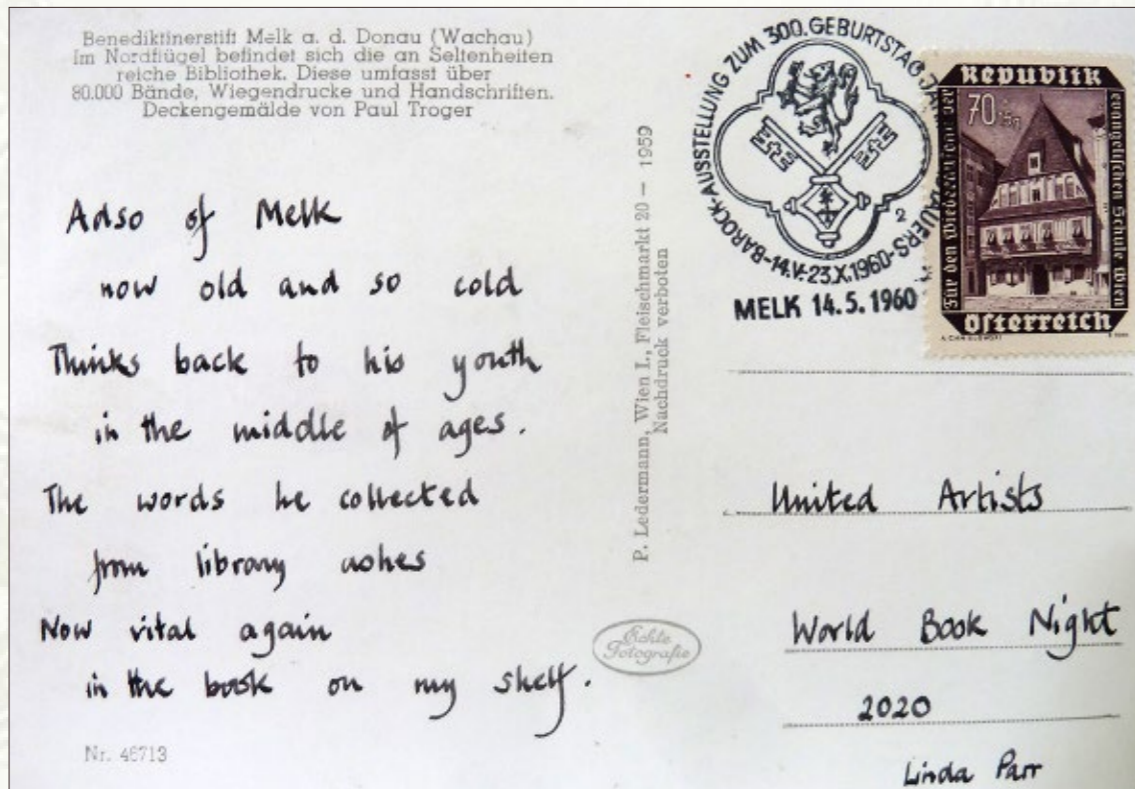 Benediktinerstift Melk a. d. Donau (Wachau)
Im Nordflügel befindet sich die an Seltenheiten
reiche Bibliothek. Diese umfasst über
80.000 Bände, Wiegendrucke und Handschriften.
Deckengemälde von Paul Troger
Adso of Melk
now old and so cold
Thinks back to his youth
in the middle of ages.
The words he collected
from library ashes
Now vital again
in the book on my shelf.
Nr. 46713
P. Ledermann, Wien I., Fleischmarkt 20 – 1959
Nachdruck verboten
Echte
Fotografie
BAROCK-AUSSTELLUNG ZUM 300. GEBURTSTAG
-14.V.-23.X.1960-
2
MELK 14.5.1960
Republik
70
Für den Wiederaufbau der
evangelischen Schule Wien
Österreich
United Artists
World Book Night
2020
Linda Parr